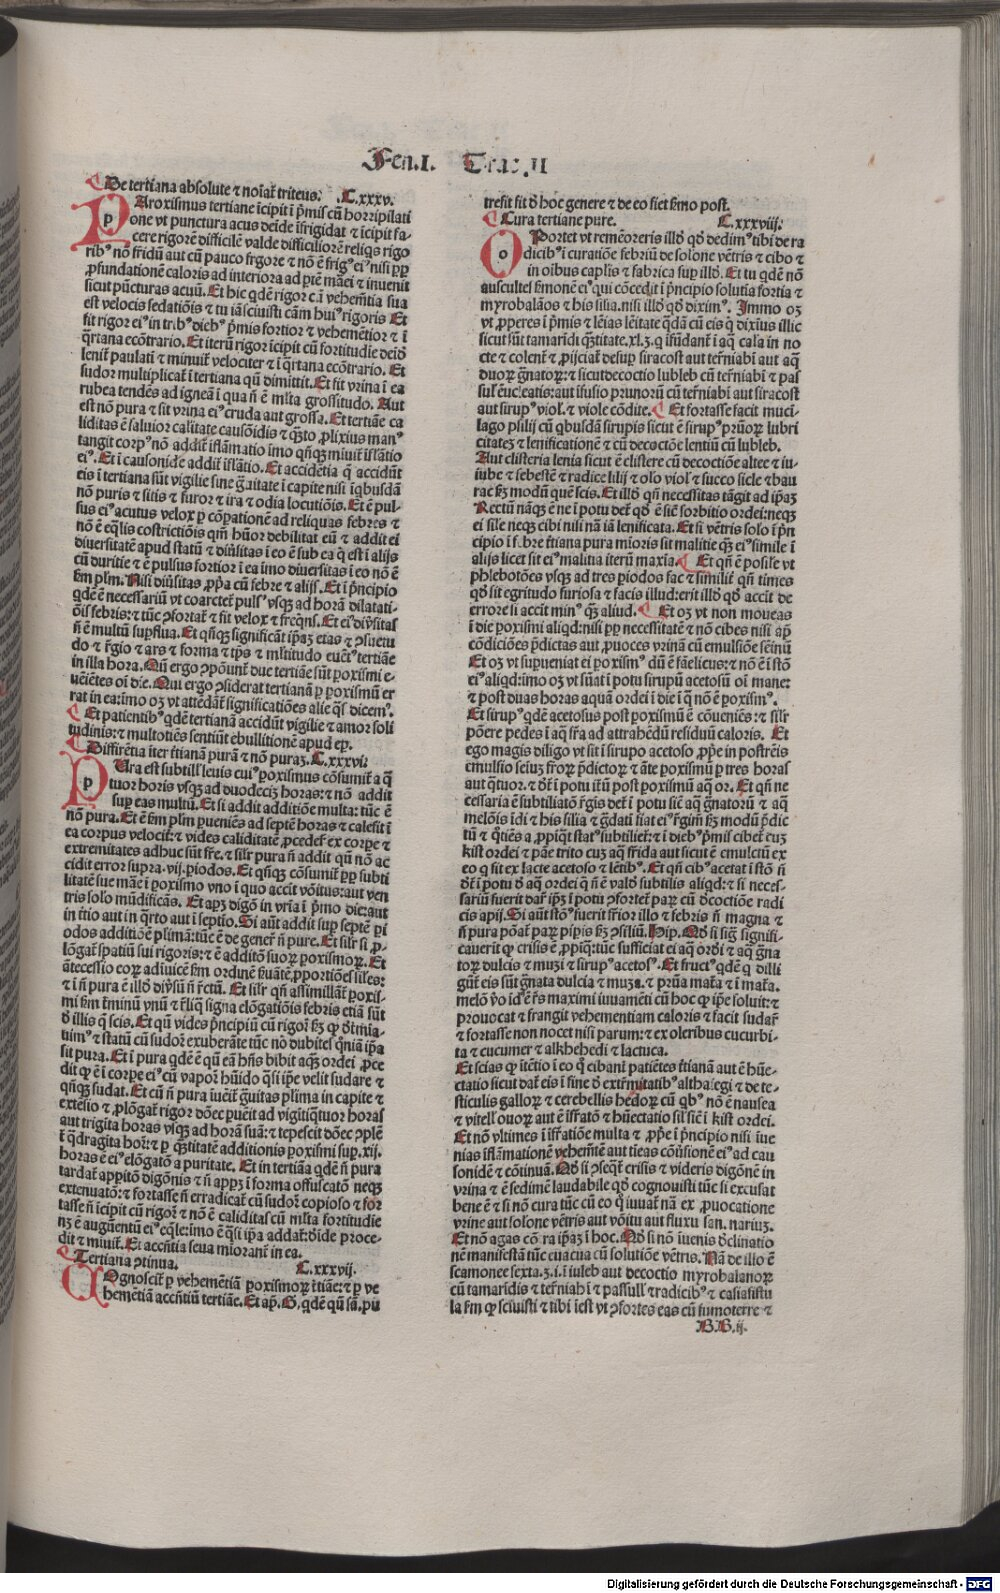 Fen.I. Trac.II
De tertiana absolute ⁊ noīat̉ triteus. C.xxxv.
PAroxismus tertiane īcipit ī p̄mis cū horripilati
one vt punctura acus deīde īfrigidat ⁊ īcipit fa-
cere rigorē difficilē valde difficiliorē reliq̄s rigo
rib⁹ nō frīdū aut cū pauco frgore ⁊ nō ē frig⁹ ei⁹ nisi ꝓp̄
ꝓfundationē caloris ad interiora ad p̄tē māei ⁊ inuenit
sicut pūcturas acuū. Et hic q̄dē rigor cā vehemētia sua
est velocis sedatiōis ⁊ tu iāsciuisti cām hui⁹ rigoris Et
fit rigor ei⁹ in trib⁹ dieb⁹ p̄mis fortior ⁊ vehemētior ⁊ ī
q̄rtana ecōtrario. Et iterū rigor īcipit cū fortitudie deīđ
lenit̉ paulati ⁊ minuit̉ velociter ⁊ ī q̄rtana ecōtrario. Et
sudor multiplicat̉ ī tertiana qn̄ dimittit. Et fit vrina ī ea
rubea tendēs ad igneā ī qua n̄ ē ml̄ta grossitudo. Aut
est nō pura ⁊ fit vrina ei⁹ cruda aut grossa. Et tertiāe ca
liditas ē saluior calitate causōidis ⁊ q̄ȝto ꝓlixius man⁹
tangit corp⁹ nō addit̉ īflāmatio imo qn̄qȝ miuit̉ īflātio
ei⁹. Et ī causonide addit̉ īflātio. Et accidētia q̄ accidūt
eis ī tertiana sūt vigilie sine g̊uitate ī capite nisi īqbusdā
nō puris ⁊ sitis ⁊ furor ⁊ ira ⁊ odia locutiōis. Et ē pul-
sus ei⁹ acutus velox ꝑ cōpationē ad reliquas febres ⁊
nō ē eq̄lis costrictiōis qm̄ hūor debilitat eū ⁊ addit ei
diuersitatē apud statū ⁊ diūsitas ī eo ē sub ea q̄ est ī alijs
cū duritie ⁊ ē pulsus fortior ī ea imo diuersitas ī eo nō ē
fm̄ plm̄. Nisi diūsitas ꝓp̄a cū febre ⁊ alijs. Et ī p̄ncipio
q̄dē ē necessariū vt coarctet̉ puls⁹ vsqȝ ad horā dilatati-
ōis febris: ⁊ tūc ꝯfortat̉ ⁊ fit velox ⁊ freq̄ns. Et ei⁹ diūsitas
n̄ ē multū supflua. Et qn̄qȝ significāt ip̄aȝ etas ⁊ ꝯsuetu
do ⁊ r̄gio ⁊ ars ⁊ forma ⁊ tp̄s ⁊ ml̄titudo euēī⁹ tertiāe
in illa hora. Qn̄ ergo ꝯpōunt̉ due tertiāe sūt poxismi e-
uēiētes oī die. Qui ergo ꝯsiderat tertianā ꝑ poxismū er
rat in ea: imo oȝ vt attēdāt̉ significatiōes alie q̄s dicem⁹.
Et patientib⁹ q̄dē tertianā accidūt vigilie ⁊ amor soli
tudinis: ⁊ multoties sentiūt ebullitionē apud ep̄.
Differētia iter tt̄ianā purā ⁊ nō purā. C.xxxvi.
PUra est subtil̉ leuis cui⁹ poxismus cōsumit̉ a q̄
tuor horis vsqȝ ad duodeciȝ horas: ⁊ nō addit
sup eas multū. Et si addit additiōe multa: tūc ē
nō pura. Et ē fm̄ plm̄ pueniēs ad septē horas ⁊ calefit ī
ea corpus velocit̉: ⁊ vides caliditatē ꝓcedeř ex corpe ⁊
extremitates adhuc sūt fr̄e. ⁊ silr̄ pura n̄ addit qn̄ nō ac
cidit error supra .vij. piodos. Et qn̄qȝ cōsumit̉ pp subti
litatē sue māe ī poxismo vno ī quo accit vōitus: aut ven
tris solo mūdificās. Et apȝ digō in vrīa ī p̄mo die: aut
in t̄tio aut in q̄rto aut ī septīo. Si aūt addit sup septē pi
odos additiōē plimā: tūc ē de gener̉ n̄ pure. Et silr̄ si ꝓ-
lōgat̉ spatiū sui rigoris: ⁊ ē additō suoꝝ poxismoꝝ. Et
ātecessio eoꝝ adiuicē fm̄ ordinē ẜuatē ꝓportiōes siles:
⁊ ī n̄ pura ē illđ diūsū n̄ r̄ctū. Et silr̄ qn̄ assimillāt̉ poxis-
mi fm̄ t̄minū vnū ⁊ r̄liq̄ signa elōgatiōis febris etiā sūt
đ illis q̄ scis. Et qn̄ vides p̄ncipiū cū rigor̉ fȝ q̄ đt̄mīa-
uim⁹ ⁊ statū cū sudor̉ exuberāte tūc nō dubites qn̄iā ip̄a
sit pura. Et ī pura q̄dē ē qn̄ eā hn̄s bibit aq̄ȝ ordei ꝓce
dit q̄ ē ī corpe ei⁹ cū vapor̉ hūido q̄si ip̄e velit sudare ⁊
qn̄qȝ sudat. Et cū n̄ pura īuēit̉ g̊uitas plima in capite ⁊
extēsio ⁊ ꝓlōgat̉ rigor dōec pueit ad vigītiqtuor horas
aut trigita horas vsqȝ ad horā suā: ⁊ tepescit dōec ꝯplē
t̉ q̄dragita hor̉: ⁊ ꝑ q̄ȝtitatē additionis poxismi sup .xij.
horas ē ei⁹ elōgatō a puritate. Et in tertiāa q̄dē n̄ pura
tardat̉ appitō digōnis ⁊ n̄ appȝ ī forma offuscatō neqȝ
extenuatō: ⁊ fortasse n̄ erradicat̉ cū sudor̉ copioso ⁊ for
tasse n̄ īcipit cū rigor̉ ⁊ nō ē calidītas cū ml̄ta fortitudie
nȝ ē augūentū ei⁹ eq̄le: imo ē q̄si ip̄a addat̉: đide proce-
dit ⁊ miuit̉. Et accn̄tia seua mioranť in ea.
Tertiana ꝯtinua. C.xxxvij.
COgnoscit̉ ꝑ vehemētiā poxismoꝝ tt̄iāe: ⁊ ꝑ ve
hemētiā accn̄tiū tertiāe. Et ap. G. q̄dē qn̄ sā. pū
tresit fit đ hoc genere ⁊ de eo fiet ẜmo post.
Cura tertiane pure. C.xxxviij.
OPortet vt remēoreris illđ qđ dedim⁹ tibi de ra
dicib⁹ ī curatiōe febriū de solone vētris ⁊ cibo ⁊
in oībus caplis ⁊ fabrica sup illđ. Et tu q̄dē nō
auscultes ẜmonē ei⁹ qui cōcedit ī p̄ncipio solutia fortia ⁊
myrobalāos ⁊ his silia. nisi illđ qđ dixim⁹. Immo oȝ
vt ꝓperes ī p̄mis ⁊ lēias lēitate q̄dā cū eis q̄ dixīus illic
sicut sūt tamaridi q̄ȝtitate .xl.ȝ. q̄ īfūdant̉ ī aq̄ cala in no
cte ⁊ colent̉ ⁊ ꝓijciat̉ desup siracost aut ter̄niabī aut aq̄
duoꝝ g̊natoꝝ: ⁊ sicut decoctio lubleb cū ter̄niabī ⁊ pas
sul̉ eūcleatis: aut īfusio prunorū cū ter̄niabī aut siracost
aut sirup⁹ viol̉. ⁊ viole cōdite. Et fortasse facit muci-
lago psilij cū qbusdā sirupis sicut ē sirup⁹ prūoꝝ lubri
citateȝ ⁊ lenificationē ⁊ cū decoctōe lentiū cū lubleb.
Aut clisteria lenia sicut ē clistere cū decoctiōe altee ⁊ iu-
iube ⁊ sebestē ⁊ radice lilij ⁊ olo viol̉ ⁊ succo sicle ⁊ bau
rac fȝ modū quē scis. Et illđ qn̄ necessitas tāgit ad ip̄aȝ
Rectū nāqȝ ē ne ī potu det̉ qđ ē sic̄ sorbitio ordei: neqȝ
ei sile neqȝ cibi nisi nā iā lenificata. Et si vētris solo ī p̄n
cipio ī febre tt̄iana pura mīoris sit malitie q̄ȝ ei⁹ simile ī
alijs licet sit ei⁹ malina iterū maxīa. Et qn̄ ē posile vt
phlebotōes vsqȝ ad tres piodos fac ⁊ similit̉ qn̄ times
qđ sit egritudo furiosa ⁊ facis illud: erit illđ qđ accit de
errore si accit min⁹ q̄ȝ aliud. Et oȝ vt non moueas
ī die poxismi aliqđ: nisi ꝓp̄ necessitatē ⁊ nō cibes nisi ap̄
cōdiciōes p̄dictas aut ꝓuoces vrinā cū emulsiōe seinū
Et oȝ vt supueniat ei poxism⁹ dū ē fāelicus: ⁊ nō ē ī stō
ei⁹ aliqđ: imo oȝ vt sūat ī potu sirupū acetosū oī mane:
⁊ post duas horas aquā ordei ī die ī q̄ nō ē poxism⁹.
Et sirup⁹ q̄dē acetosus post poxismū ē cōueniēs: ⁊ silr̄
pōere pedes ī aq̄ fr̄a ad attrahēdū residuū caloris. Et
ego magis diligo vt sit ī sirupo acetoso ꝓpe in postreīs
emulsio seiuȝ froꝝ p̄dictoꝝ ⁊ āte poxismū ꝑ tres horas
aut q̄tuor. ⁊ đt̉ ī potu it̉ū post poxismū aq̄ or. Et qn̄ ne
cessaria ē subtiliatō r̄gīs det̉ ī potu sic̄ aq̄ g̊natorū ⁊ aq̄
melōis īdi ⁊ his silia ⁊ g̊dati fiat ei⁹ r̄gīm̄ fȝ modū p̄dic
tū ⁊ q̄tiēs a ꝓpīq̄t stat⁹ subtiliet̉: ⁊ ī dieb⁹ p̄mis cibet̉ cuȝ
kist ordei ⁊ pāe trito cuȝ aq̄ fr̄ida aut sicut ē emulctū ex
eo q̄ fit ex lacte acetoso ⁊ lētib⁹. Et qn̄ cib⁹ acetat ī stō n̄
đt̉ ī potu đ aq̄ ordei q̄ n̄ ē valđ subtilis aliqđ: ⁊ si neces-
sariū fuerit dar̉ ip̄ȝ ī potu ꝯfortet̉ paꝝ cū đcoctiōe radi
cis apij. Si aūt stō⁹ fuerit fr̄ior illo ⁊ febris n̄ magna ⁊
n̄ pura pōat̉ paꝝ pipis fȝ ꝯsiliū. Hip. Qđ si sig̊ signifi-
cauerit q̄ crisis ē ꝓpīq̄: tūc sufficiat ei aq̄ ordī ⁊ aq̄ g̊na
toꝝ dulcis ⁊ muzi ⁊ sirup⁹ acetos⁹. Et fruct⁹ q̄dē q̄ dili
gūt̉ eis sūt g̊nata dulcia ⁊ muza. ⁊ prūa mat̉a ⁊ ī mat̉a.
melō v̊o īdē ē r̄s maximi iuuamēti cū hoc q̄ ip̄e soluit: ⁊
prouocat ⁊ frangit vehementiam caloris ⁊ facit sudar̄
⁊ fortasse non nocet nisi parum: ⁊ ex oleribus cucurbi-
ta ⁊ cucumer ⁊ alkhehedi ⁊ lactuca.
Et scias q̄ ītētio ī eo q̄ cibant̉ patiētes tt̄ianā aut ē hūe-
ctatio sicut dat̉ eis ī fine đ extr̄mitatib⁹ althaiegi ⁊ de te-
sticulis galloꝝ ⁊ cerebellis hedoꝝ cū qb⁹ nō ē nausea
⁊ vitell̉ ouoꝝ aut ē īfratō ⁊ hūectatio sil̉ sic̄ ī kist ordei.
Et nō vltimes ī īfratiōe multa ⁊ ꝓp̄e ī p̄ncipio nisi īue
nias īflāmationē vehemētē aut tieas cōūsionē ei⁹ ad cau
sonidē ⁊ cōtinuā. Qđ si ꝯseq̄t̉ crisis ⁊ videris digōnē in
vrina ⁊ ē sedimē laudabile qđ cognouisti tūc si excusat
bene ē ⁊ si nō cura tūc cū eo q̄ iuuat̉ nā ex ꝓuocatione
vrine aut solone vētris aut vōitu aut fluxu san. nariuȝ.
Et nō agas cō ra ip̄aȝ ī hoc. Qđ si nō iuenis đclinatio
nē manifestā tūc euacua cū solutiōe vētris. Nā de illo ē
scamonee sexta .ȝ.i. ī iuleb aut decoctio myrobalanoꝝ
cū tamarīdis ⁊ ter̄niabī ⁊ passull̉ ⁊ radicib⁹ ⁊ casiafistu
la fm̄ q̄ sciuisti ⁊ tibi īest vt ꝯfortes eas cū fumoterre ⁊
BB.ij.
Digitalisierung gefördert durch die Deutsche Forschungsgemeinschaft - DFG